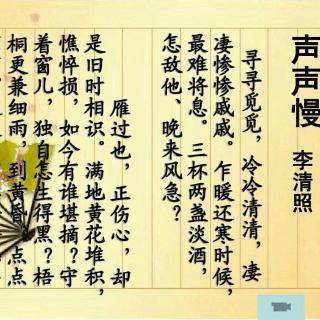 声声慢
李清照
寻寻觅觅，冷冷清清，凄
凄惨惨戚戚。乍暖还寒时候，
最难将息。三杯两盏淡酒，
怎敌他、晚来风急？
雁过也，正伤心，却
是旧时相识。满地黄花堆积，
憔悴损，如今有谁堪摘？守
着窗儿，独自怎生得黑？梧
桐更兼细雨，到黄昏、点点